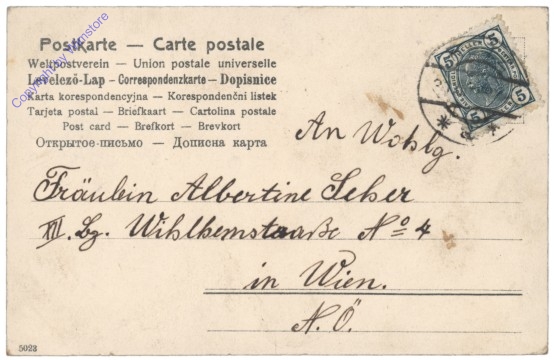 Postkarte — Carte postale
Weltpostverein — Union postale universelle
Levelező-Lap - Correspondenzkarte - Dopisnice
Karta korespondencyjna — Korespondenční listek
Tarjeta postal — Briefkaart — Cartolina postale
Post card — Brefkort — Brevkort
Открытое-письмо — Дописна карта
Copyright by wmstore
5 5
5 5
An Wohlg.
Fräulein Albertine Seher
XII. Bz. Wihlhemstraaße No 4
in Wien.
N.Ö.
5023